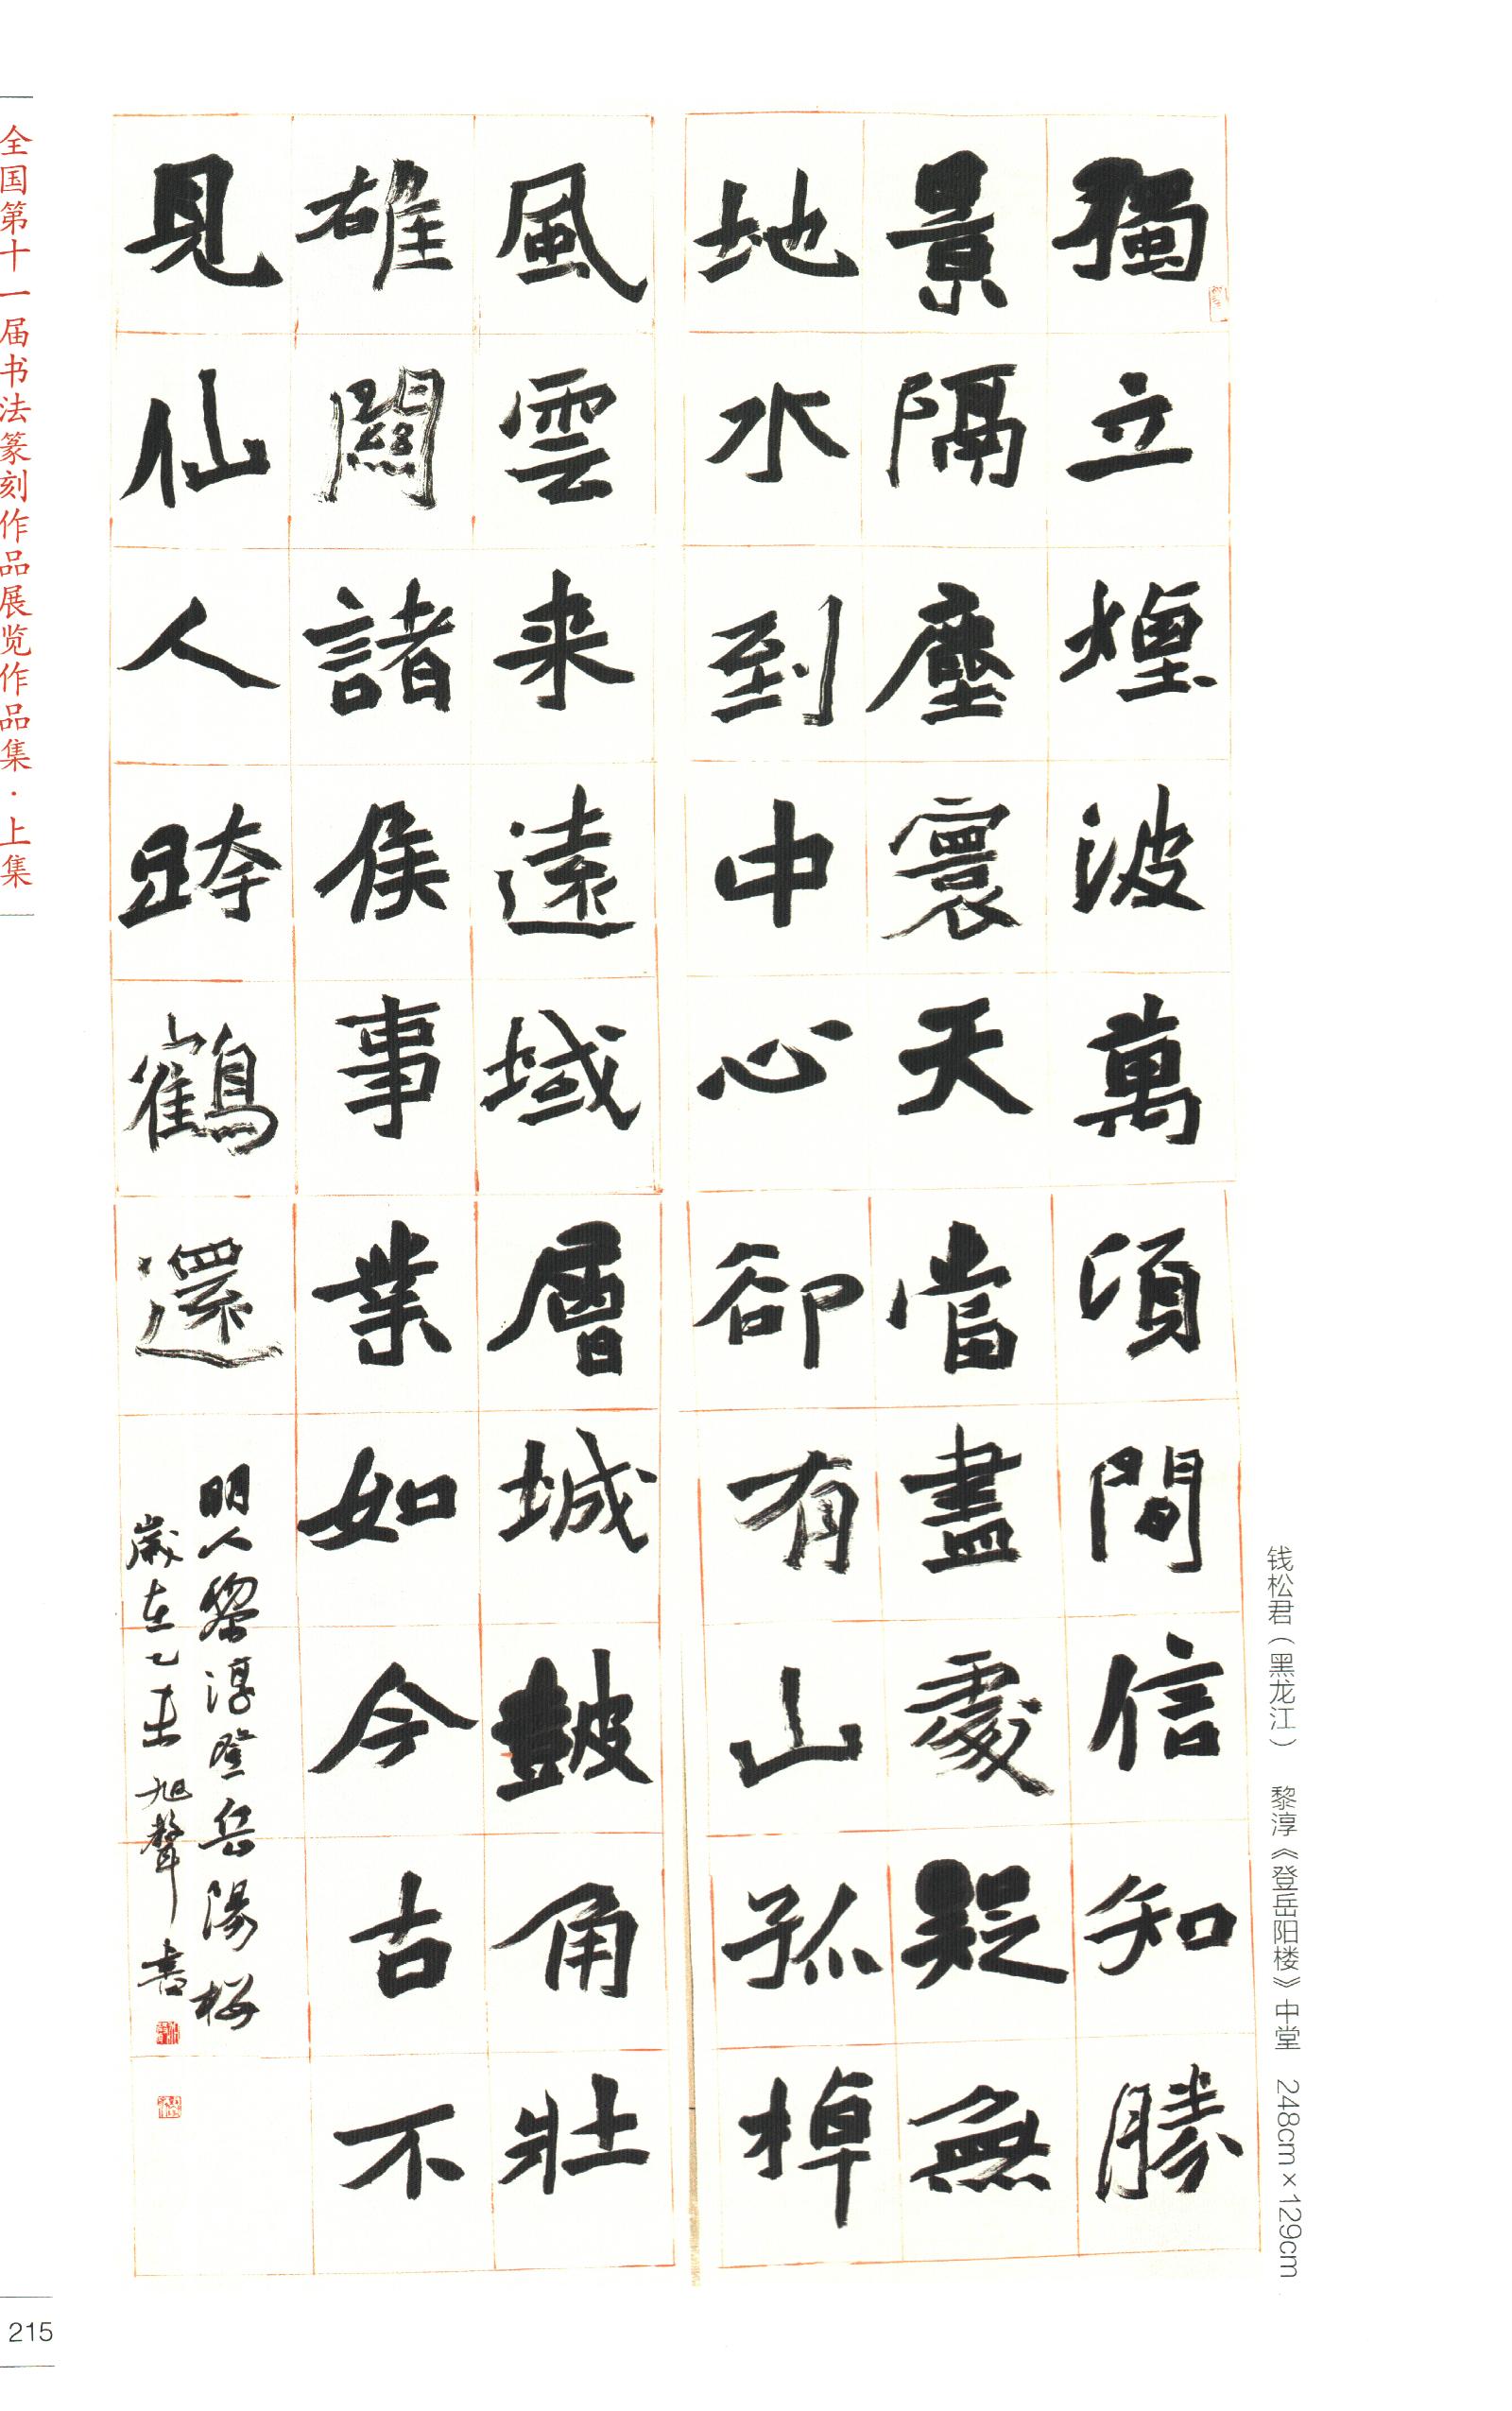 钱松君（黑龙江） 黎淳《登岳阳楼》中堂 248cm×129cm
獨立煙波萬頃間信知勝
景隔塵寰天當盡處疑無
地水到中心卻有山孤棹
風雲来遠域層城鼓角壯
雄關諸侯事業如今古不
見仙人跨鶴還
明人黎淳登岳陽樓
歲在乙未旭聲書
全国第十一届书法篆刻作品展览作品集·上集
215